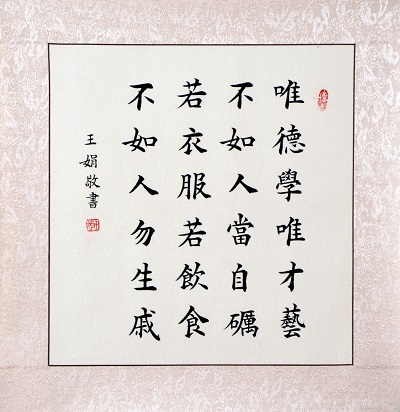 唯德學唯才藝
不如人當自礪
若衣服若飲食
不如人勿生戚
王娟敬書